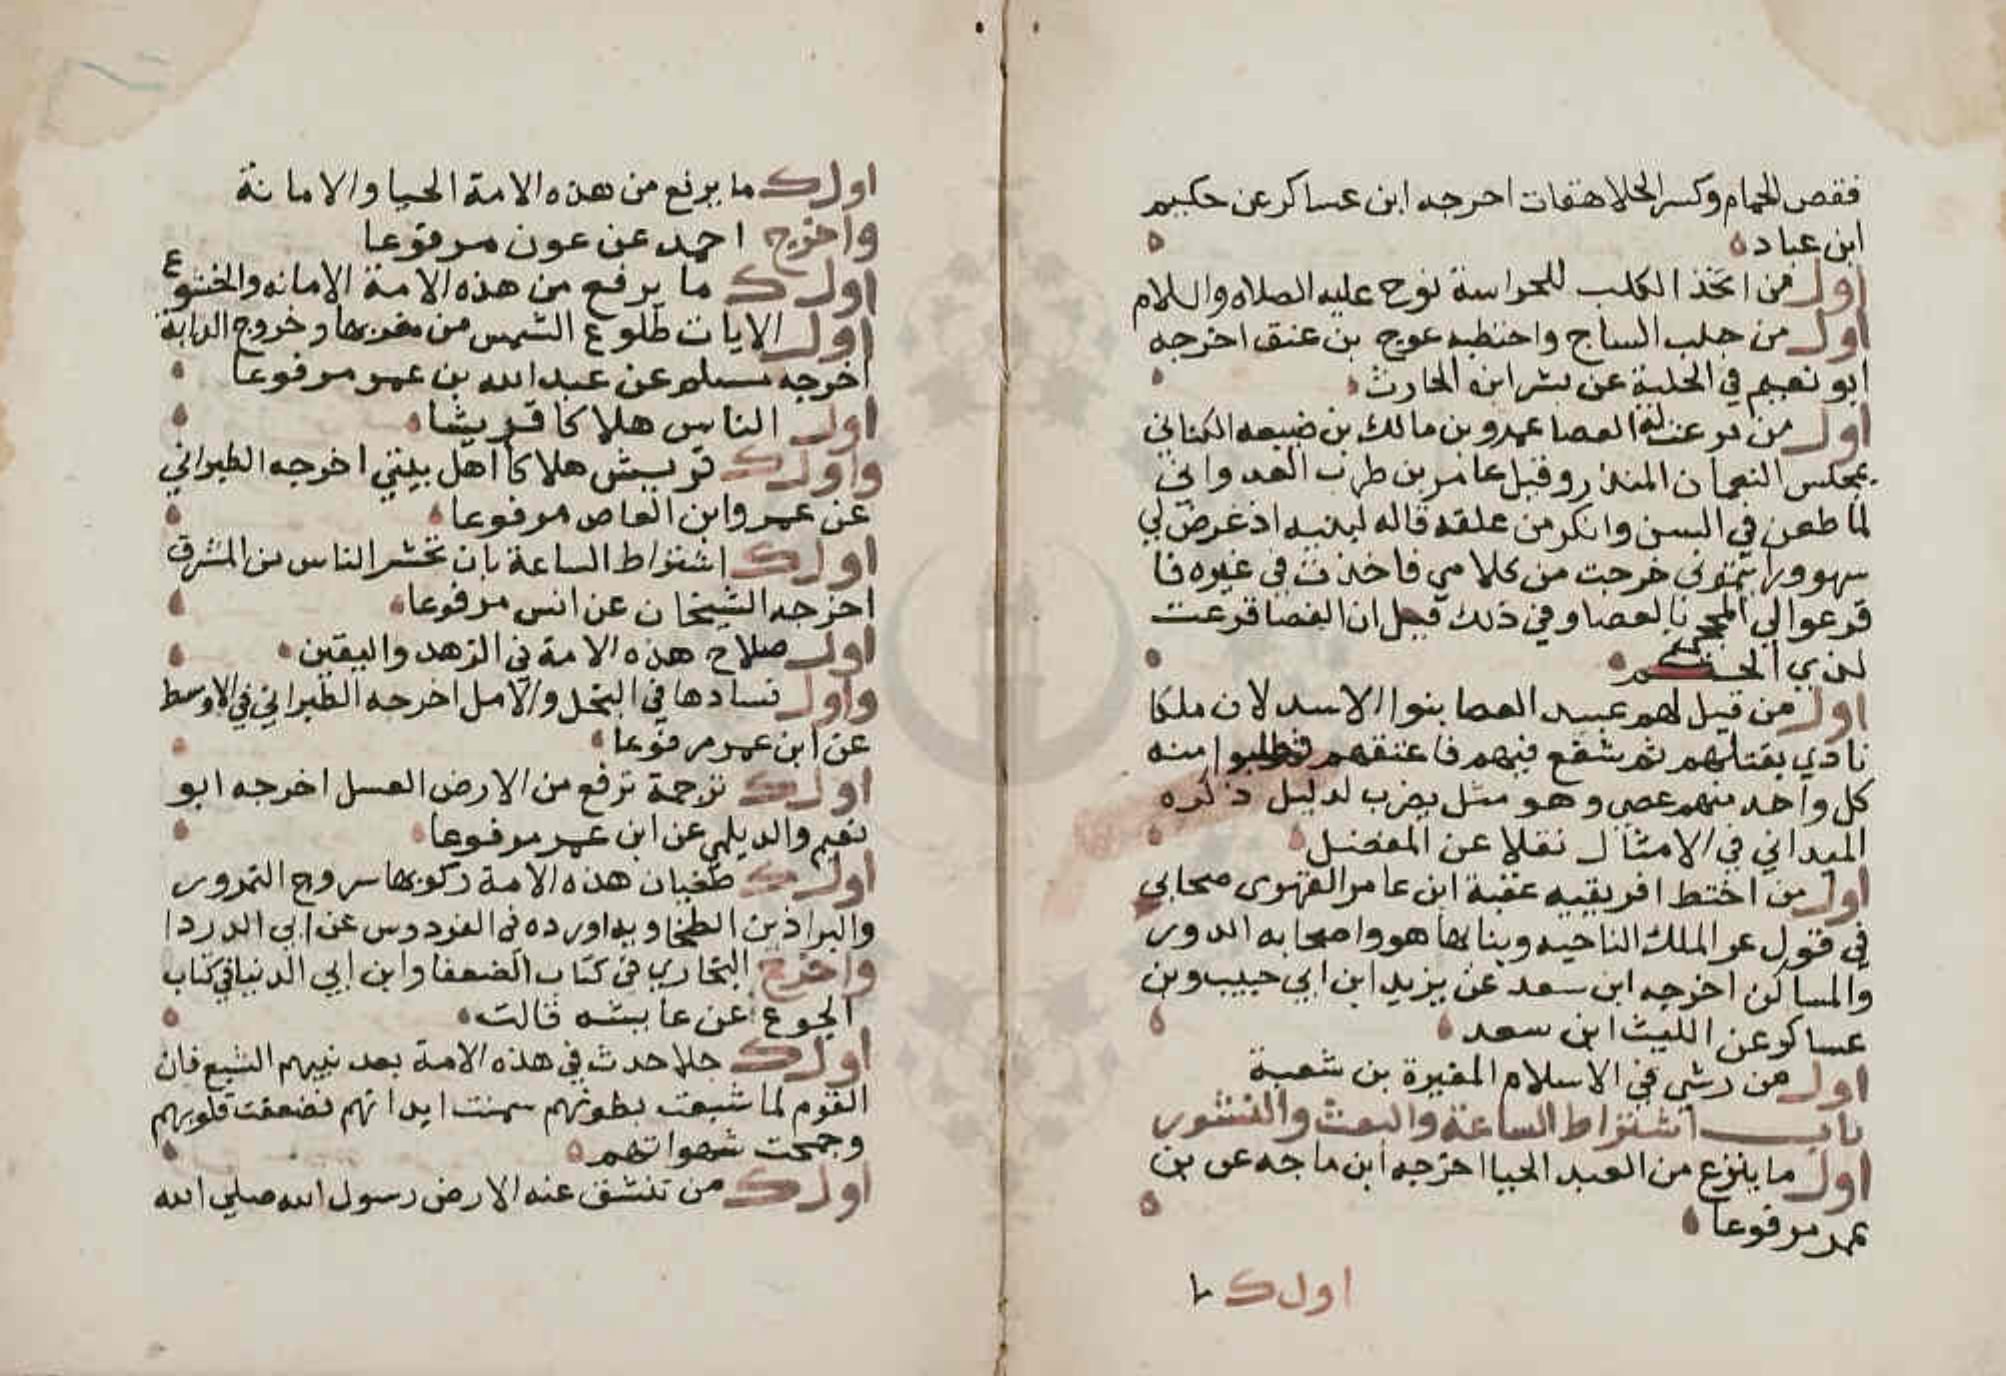 فقص الحمام وكسر الجلاهقات اخرجه ابن عساكر عن حكيم
ابن عباد
اول من اتخذ الكلب للحراسة نوح عليه الصلاه والسلام
اول من جلب الساج واختطبه عوج بن عنق اخرجه
ابو نعيم في الحلية عن بشر ابن الحارث
اول من قرعت له العصا عمرو بن مالك بن ضبيعه الكناني
بمجلس النعمان المنذر وقيل عامر بن طرب العدواني
لما طعن في السن وانكر من علقه قاله لبنيه اذ عرض لي
سهو ورايتموني خرجت من كلامي فاخذت في غيره فا
قرعوا لي المجن بالعصا وفي ذلك قيل ان العصا قرعت
لذي الحكم
اول من قيل لهم عبيد العصا بنوا الاسد لان ملكا
نادي بقتلهم ثم شفع فيهم فاعتقهم فطلبوا منه
كل واحد منهم عصي وهو مثل يضرب لدليل ذكره
الميداني في الامثال نقلا عن المفضل
اول من اختط افريقيه عقبة ابن عامر الفهري صحابي
في قول عن الملك الناحيه وبنا بها هو واصحابه الدور
والمساكن اخرجه ابن سعد عن يزيد ابن ابي حبيب وبن
عساكر عن الليث ابن سعد
اول من رشي في الاسلام المغيرة بن شعبة
باب اشتراط الساعة والبعث والنشور
اول ما ينزع من العبد الحيا اخرجه ابن ماجه عن بن
عمر مرفوعا
اولك ما
اولك ما يرفع من هذه الامة الحيا والامانة
واخرج احمد عن عون مرفوعا
اولك ما يرفع من هذه الامة الامانه والخشوع
اول الايات طلوع الشمس من مغربها وخروج الدابة
اخرجه مسلم عن عبد الله بن عمر مرفوعا
اول الناس هلاكا قريشا
واولك قريش هلاكا اهل بيتي اخرجه الطبراني
عن عمر وابن العاص مرفوعا
اولك اشتراط الساعة بان تحشر الناس من المشرق
اخرجه الشيخان عن انس مرفوعا
اول صلاح هذه الامة في الزهد واليقين
واول فسادها في البخل والامل اخرجه الطبراني في الاوسط
عن ابن عمر مرفوعا
اولك ترجمة ترفع من الارض العسل اخرجه ابو
نعيم والديلمي عن ابن عمر مرفوعا
اولك طغيان هذه الامة ركوبها سروج النمور
والبراذين الطخاويه اورده في الفردوس عن ابي الدردا
واخرج البخاري في كتاب الضعفا وابن ابي الدنيا في كتاب
الجوع عن عايشه قالت
اولك جلا حدث في هذه الامة بعد نبيهم الشبع فان
القوم لما شبعت بطونهم سمنت ابدانهم فضعفت قلوبهم
وجمحت شهواتهم
اولك من تنشق عنه الارض رسول الله صلي الله